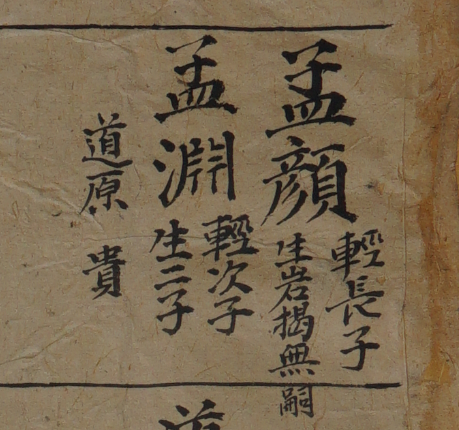 孟顔
輕長子
生岩揭無嗣
孟淵
輕次子
生二子
道原 貴